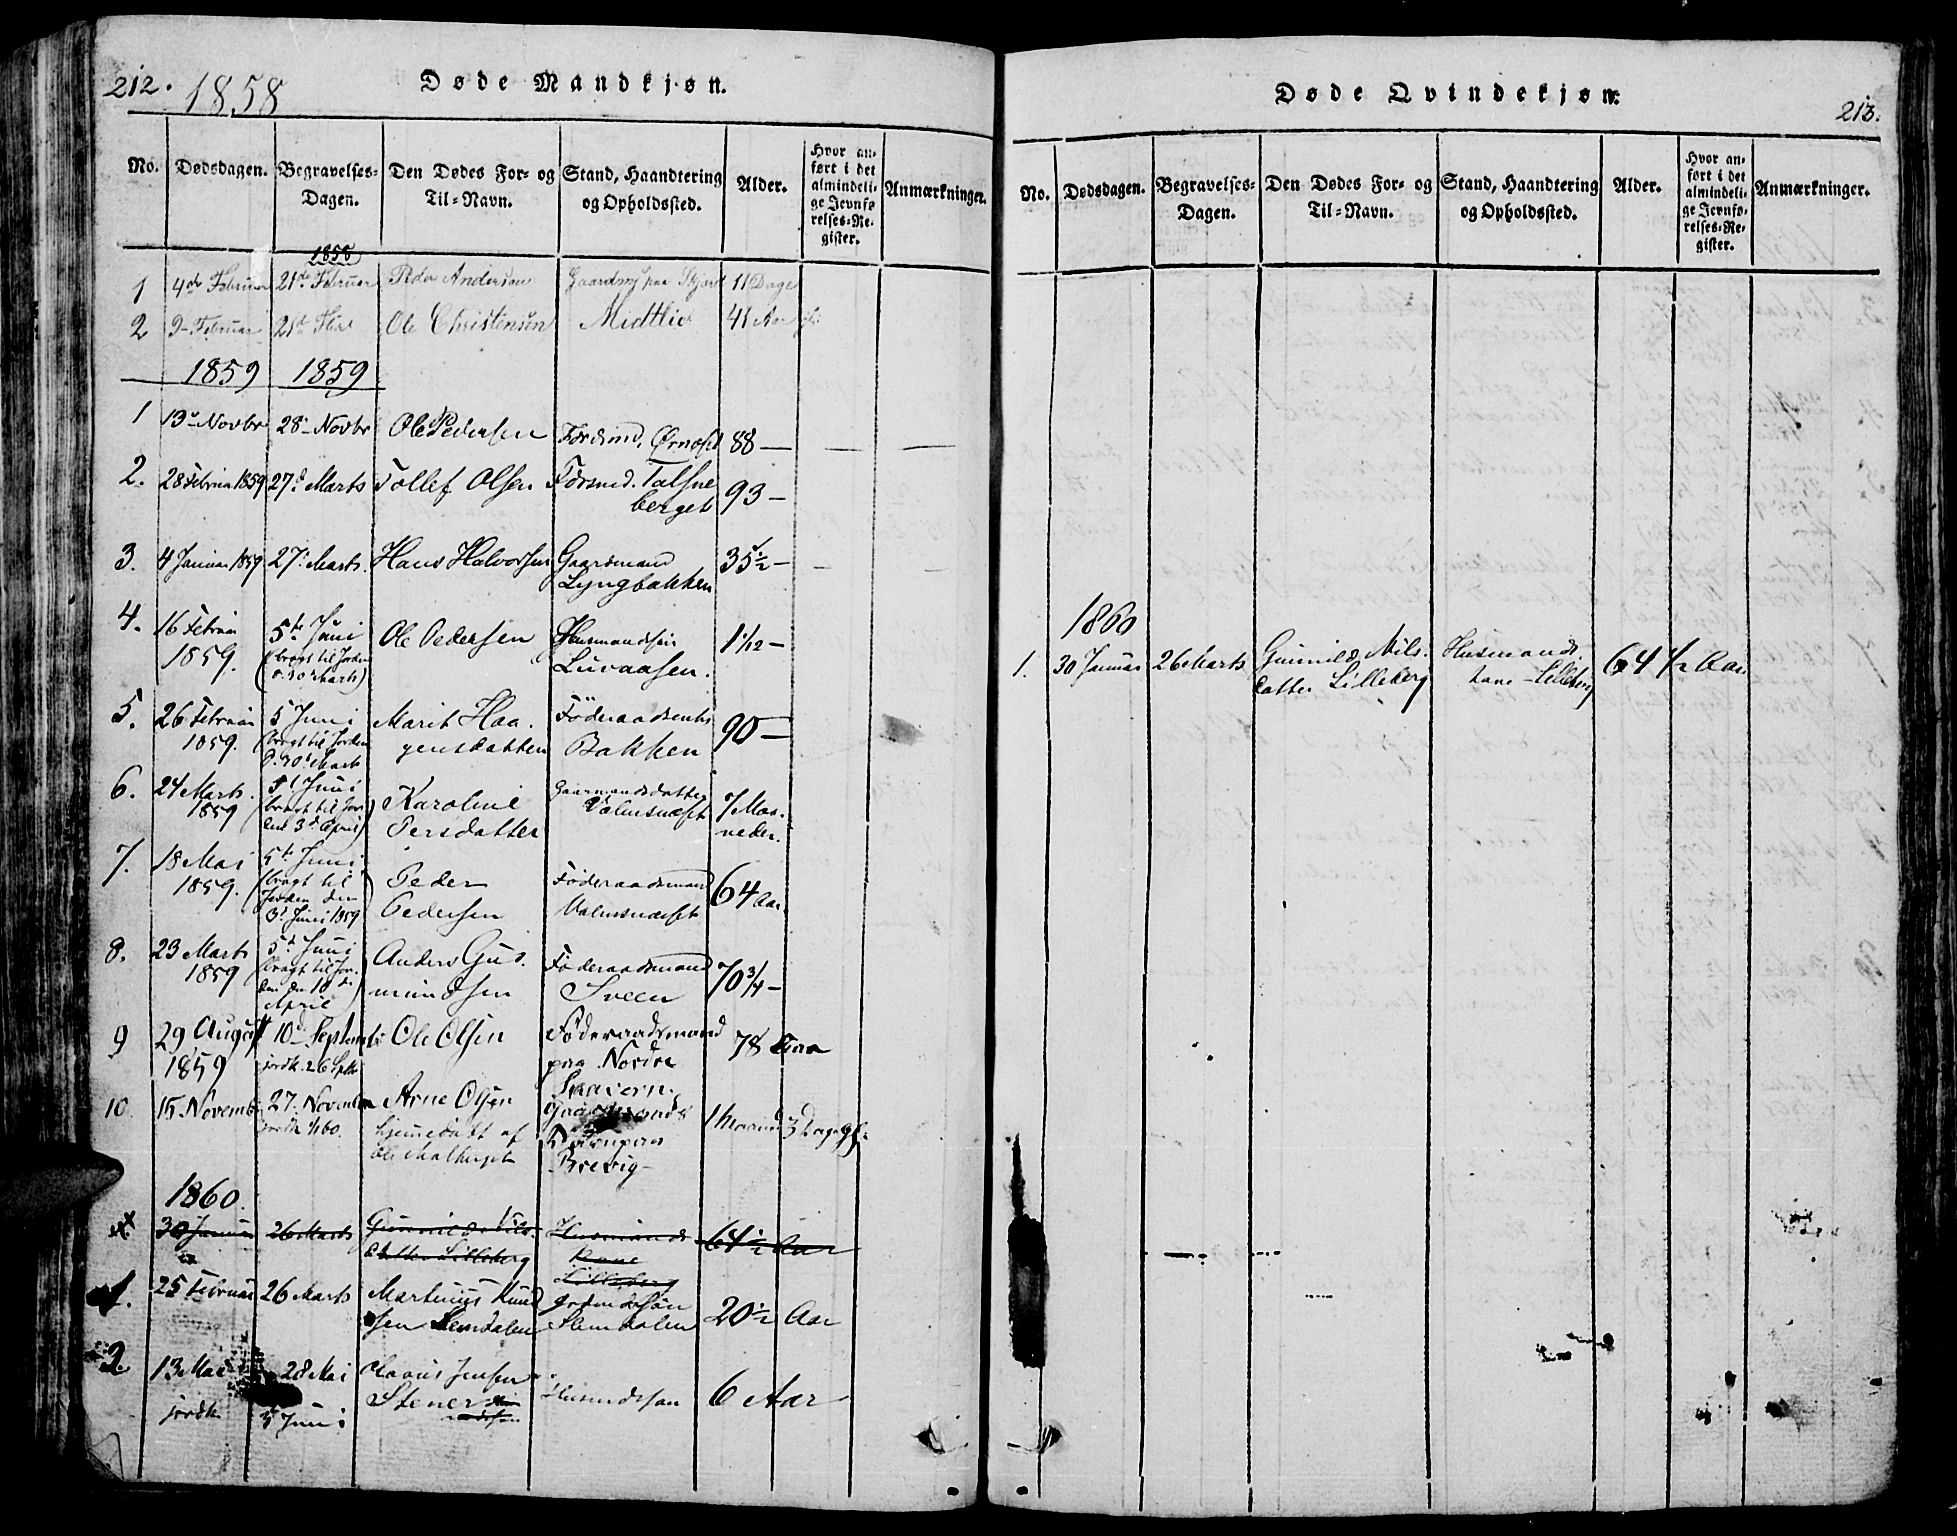 212. 1858 Døde Mandkjøn.
No. Dødsdagen. Begravelses-Dagen. Den Dødes For- og Til-Navn. Stand, Haandtering og Opholdssted. Alder. Hvor anført i det almindelige Jevnførelses-Register. Anmærkninger.
1858
1 4de Februar 21de Februar Peder Andersen Gaardm paa 11 Dage
2 9- Februar 21d Ole Christensen Midtlie 41 Aar
1859 1859
1 13- Novbr 28- Novbr Ole Pedersen Ørnoset 88 —
2. 28 Februar 1859 27d Marts Tollef Olsen Talsne
berget 93 —
3. 4 Januar 1859 27. Marts. Hans Halvorsen Gaardmand
Lyngbakken 35½ —
4. 16 Februar
1859. 5te Juni
(bragt til Jorden
d. 30 Marts) Ole Pedersen Husmandssøn
Luvaasen. 1 1/12 —
5. 26 Februar
1859. 5 Juni
(bragt til Jorden
d. 30t Marts Marit Haa-
gensdatter Föderaadsenke
Bakken 90 —
6. 24 Marts.
1859 5t Juni
(bragt til Jor
den 3d April) Karoline
Persdatter Gaarmandsdatter
Valmsnæset 7 Maa-
neder.
7. 18 Mai
1859. 5te Juni
(bragt til
Jorden den
3d Juni 1859 Peder
Pedersen Föderaadsmand
Valmsnæset 64 Aar.
8. 23 Marts
1859 5d Juni
(bragt til Jor-
den den 10de
April) Anders Gus-
mundsen Föderaadsmand
Sveen 70¾ —
9 29 August
1859 10de Septemb
jordk. 26 Septb Ole Olsen Föderaadsmand
paa Nordre 78 Aar
10. 15 Novemb 27. November
jordk 1/1 60. Arne Olsen
hjemmedøbt af
Ole Gaardmands
Brevig — 1 Maaned 3 Dage
1860.
30 Januar 26 Marts Gunnild Nils-
datter Lilleberg Husmands
Kone
Lilleberg 64½ Aar
1. 25 Februar 26 Marts Martinus Knud
sen Slemdalen
Slemdalen 20½ Aar
2. 13 Mai
jordk 28 Mai
5 Juni Claus Jensen
Stener Husmdssøn 6 Aar
Døde Qvindekjøn. 213.
No. Dødsdagen. Begravelses-Dagen. Den Dødes For- og Til-Navn. Stand, Haandtering og Opholdssted. Alder. Hvor anført i det almindelige Jevnførelses-Register. Anmærkninger.
1860
1. 30 Januar 26 Marts Gunnild Nils-
datter Lilleberg Husmands
kone - Lilleberg 64 ½ Aar